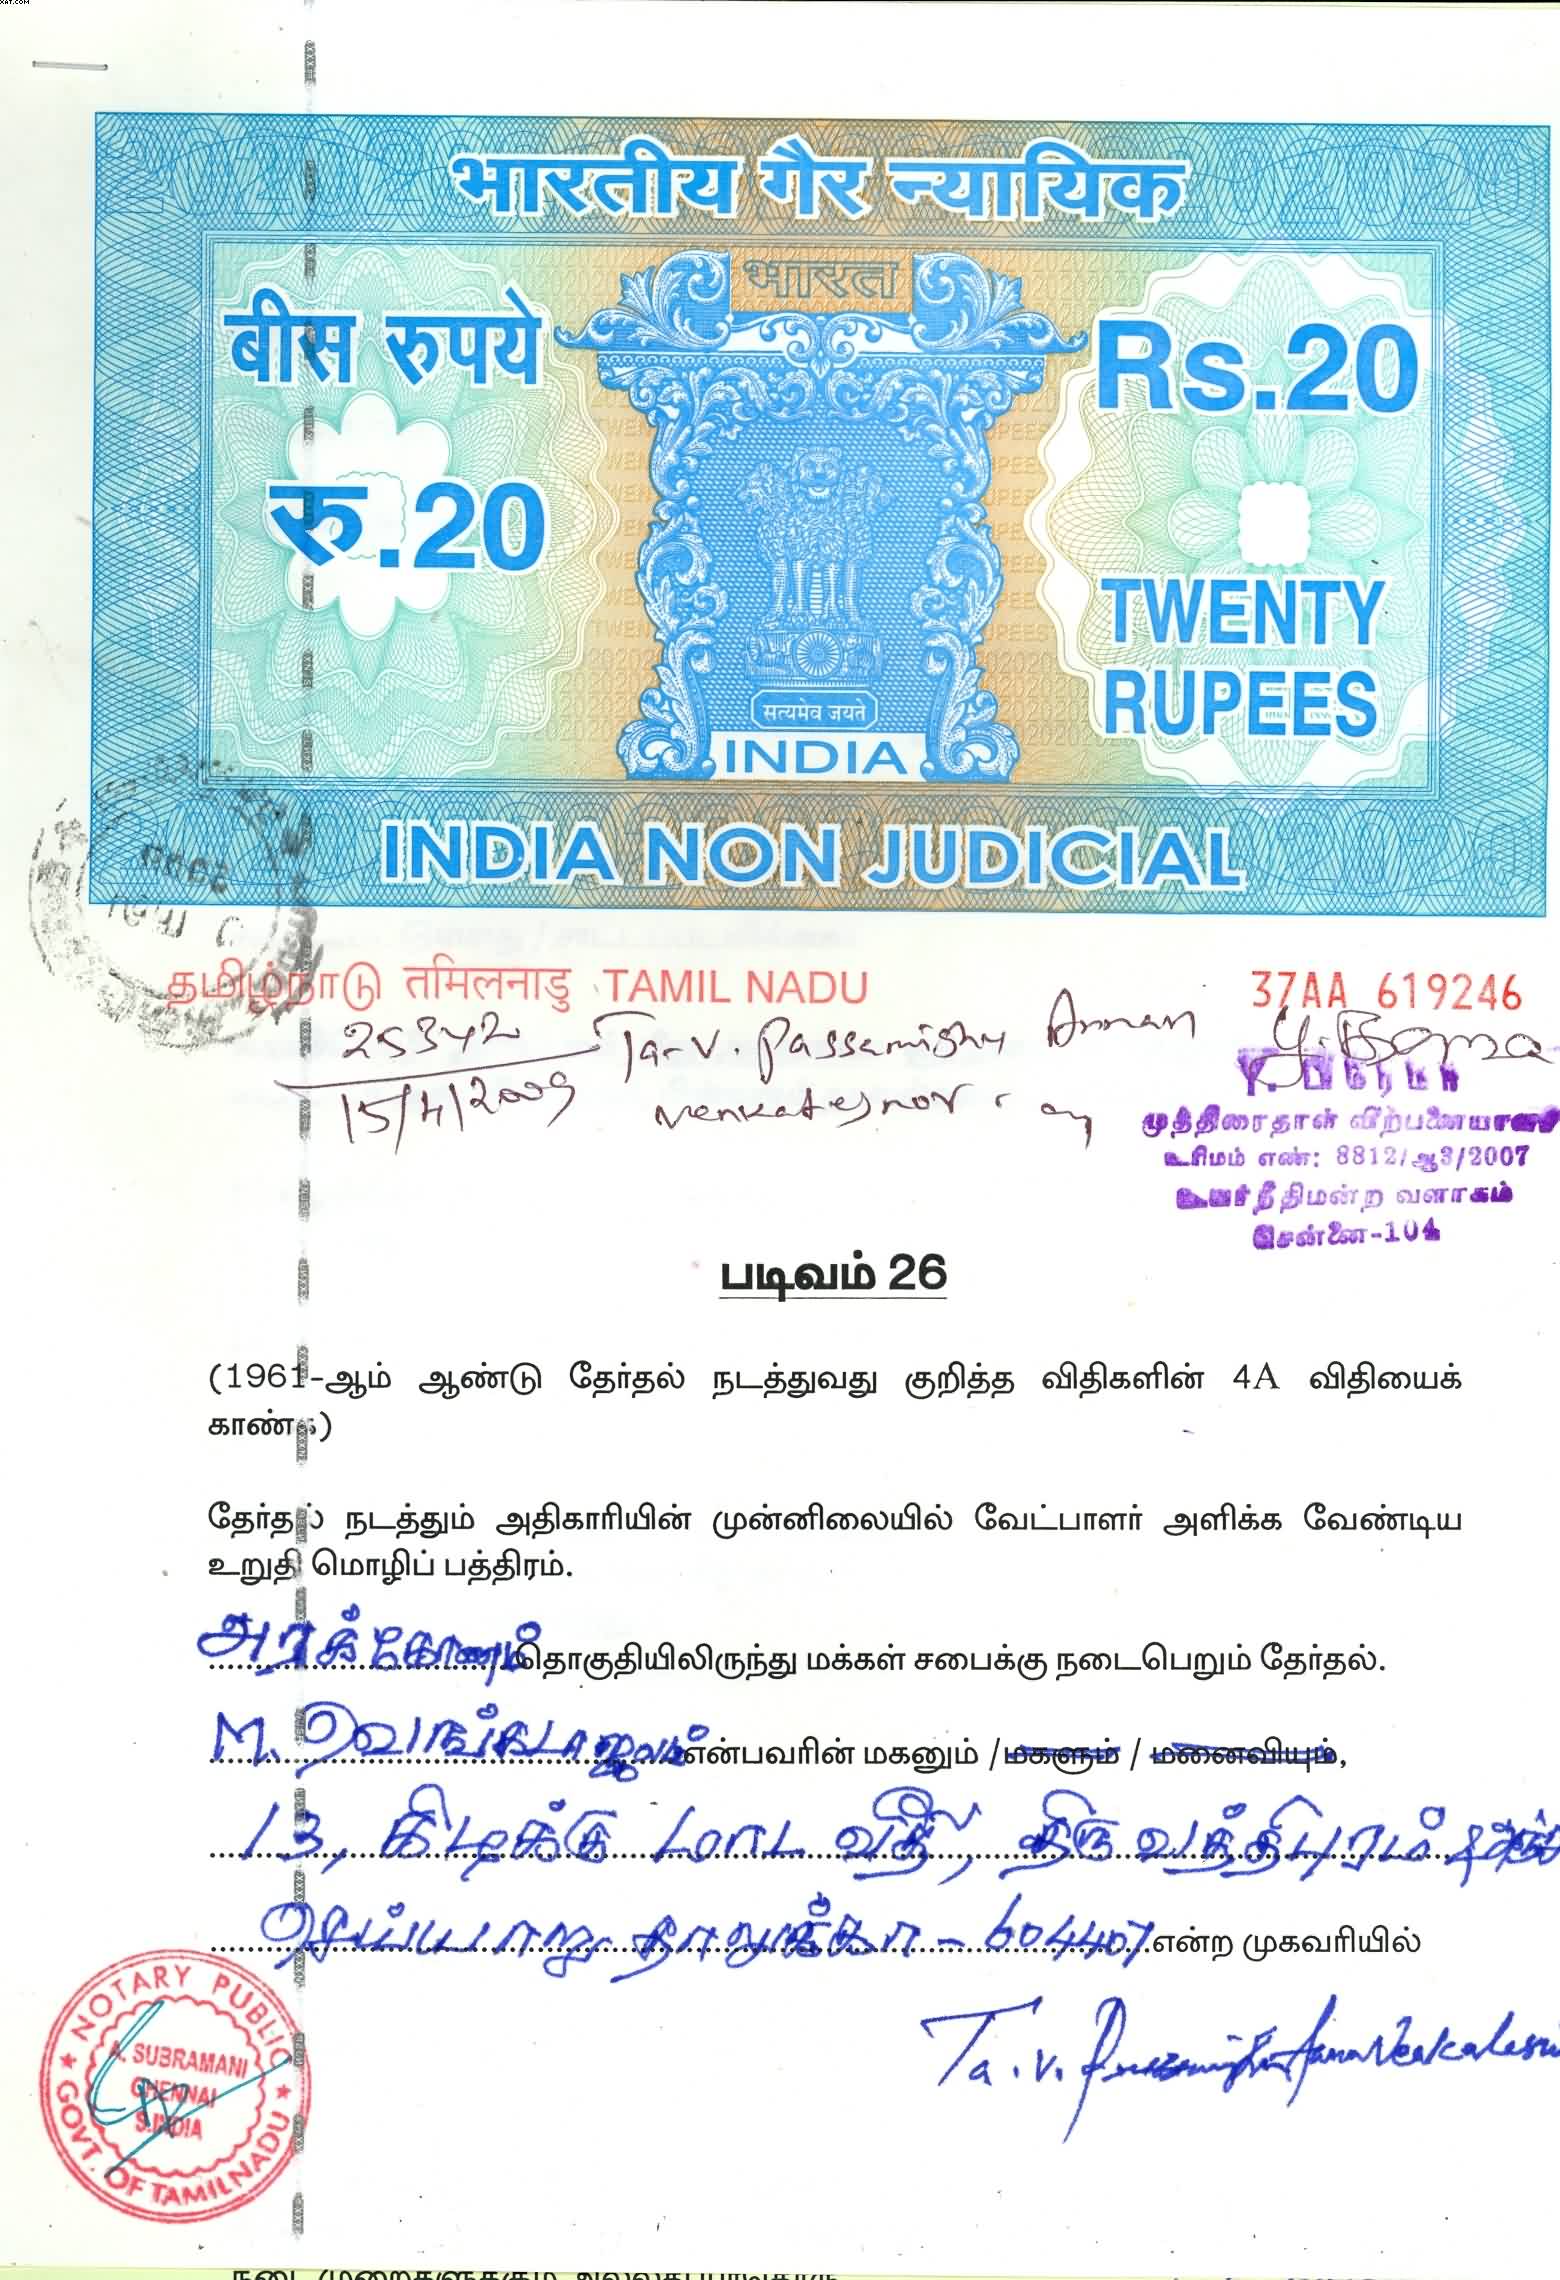 भारतीय गैर न्यायिक
भारत
बीस रुपये
Rs.20
रु.20
TWENTY
RUPEES
सत्यमेव जयते
INDIA
INDIA NON JUDICIAL
தமிழ்நாடு तमिलनाडु TAMIL NADU
37AA 619246
25342
15/4/2009
Ta. V.
முத்திரைதாள் விற்பனையாளர்
உரிமம் எண்: 8812/ஆ3/2007
உயர்நீதிமன்ற வளாகம்
சென்னை-104
படிவம் 26
(1961-ஆம் ஆண்டு தேர்தல் நடத்துவது குறித்த விதிகளின் 4A விதியைக்
காண்க)
தேர்தல் நடத்தும் அதிகாரியின் முன்னிலையில் வேட்பாளர் அளிக்க வேண்டிய
உறுதி மொழிப் பத்திரம்.
அரக்கோணம் தொகுதியிலிருந்து மக்கள் சபைக்கு நடைபெறும் தேர்தல்.
M. வெங்கடாஜலம் என்பவரின் மகனும் / மகளும் / மனைவியும்,
13, கிழக்கு மாட வீதி, திருவத்திபுரம்
செய்யாறு தாலுக்கா - 604407 என்ற முகவரியில்
Ta. V.
NOTARY PUBLIC
A. SUBRAMANI
CHENNAI
S.INDIA
GOVT. OF TAMILNADU